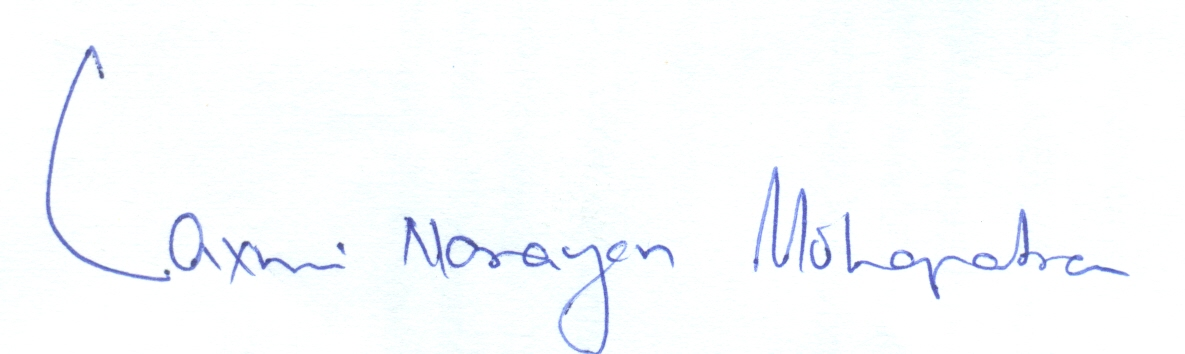 Laxmi Narayan Mohapatra